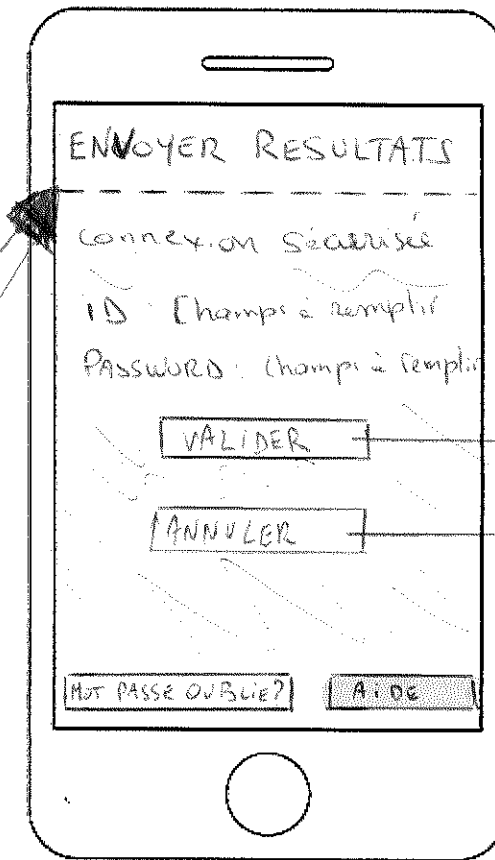 ENVOYER RESULTATS
Connexion Sécurisée
ID : Champs à remplir
PASSWORD : Champs à remplir
VALIDER
ANNULER
MOT PASSE OUBLIE? AIDE